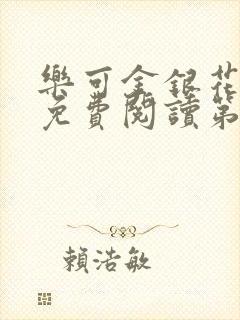 樂可金銀花
免費閱讀第
賴浩敏